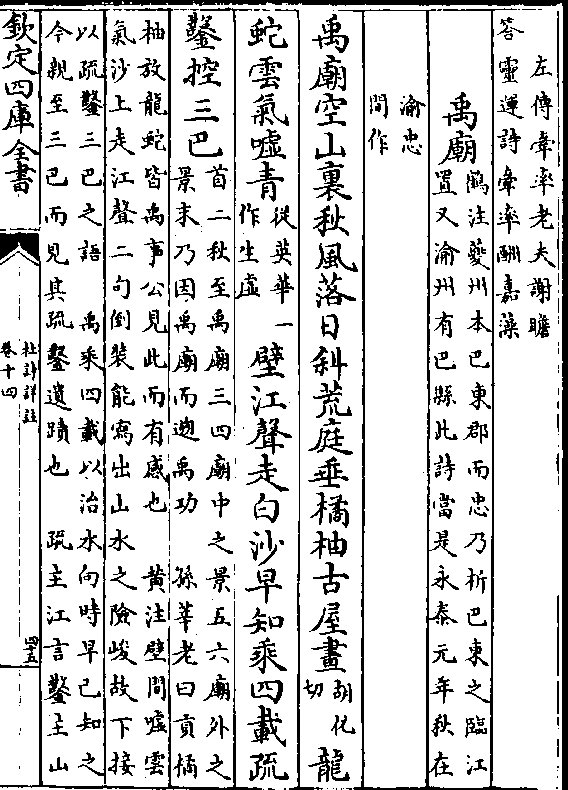 左傳牽率老夫謝瞻
答靈運詩牽率酬嘉藻
禹廟
鶴注夔州本巴東郡而忠乃析巴東之臨江
置又渝州有巴縣此詩當是永泰元年秋在
渝忠
間作
禹廟空山裏秋風落日斜荒庭垂橘柚古屋畫
胡化
切
龍
蛇雲氣噓青
從英華一
作生虛
壁江聲走白沙早知乘四載疏
鑿控三巴
首二秋至禹廟三四廟中之景五六廟外之
景末乃因禹廟而遡禹功　孫莘老曰貢橘
柚放龍蛇皆禹事公見此而有感也　黃注壁間噓雲
氣沙上走江聲二句倒裝能寫出山水之險峻故下接
以疏鑿三巴之語　禹乘四載以治水向時早已知之
今親至三巴而見其疏鑿遺蹟也　疏主江言鑿主山
欽定四庫全書
杜詩詳註
卷十四
四十五